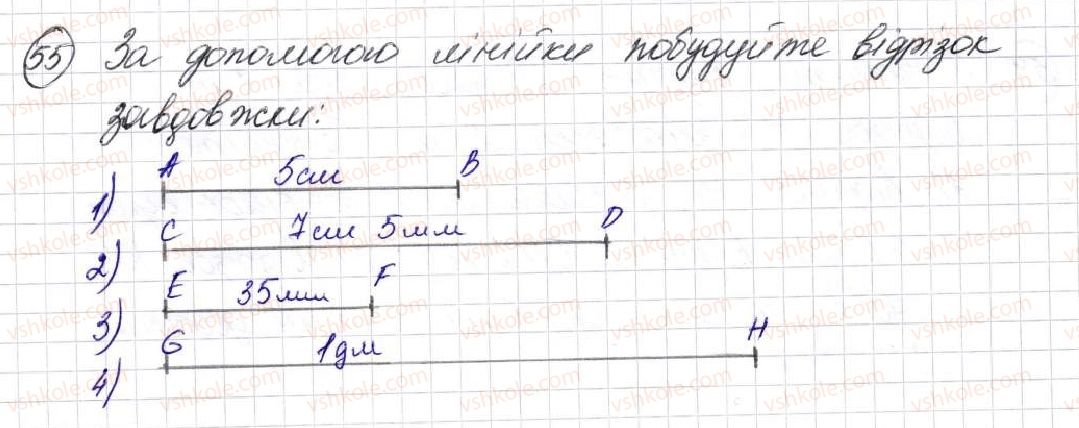 55 За допомогою лінійки побудуйте відрізок
завдовжки:
1) A 5см B
2) C 7см 5мм D
3) E 35мм F
4) G 1дм H